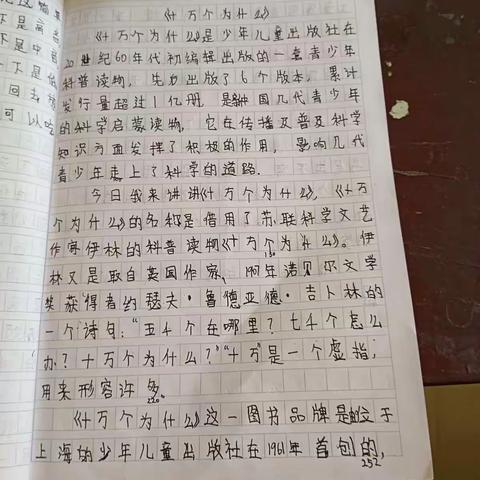 《十万个为什么》
《十万个为什么》是少年儿童出版社在
20世纪60年代初编辑出版的一套青少年
科普读物，先力出版了6个版本，累计
发行量超过1亿册，是国几代青少年
的科学启蒙读物，它在传播及普及科学
知识方面发挥了积极的作用，影响几代
青少年走上了科学的道路.
今日我来讲讲《十万个为什么》，《十万
个为什么》的名称是借用了苏联科学文艺
作家伊林的科普读物《十万个为什么》。伊
150
林又是取自英国作家、1907年诺贝尔文学
奖获得者约瑟夫·鲁德亚德·吉卜林的
一个诗句："五千个在哪里？七千个怎么
办？十万个为什么？""十万"是一个虚指，
用来形容许多。
《十万个为什么》这一图书品牌是立于
上海的少年儿童出版社在1961年首创的，
252
下是高
下是中
下是低
回去
可以吃